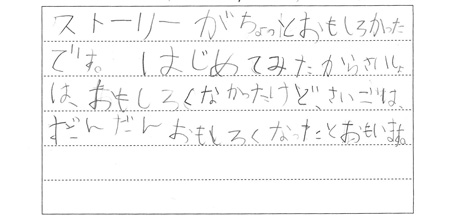 ストーリーがちょっとおもしろかった
です。はじめてみたからさいしょ
は、おもしろくなかったけど、さいごは、
だんだんおもしろくなったとおもいます。